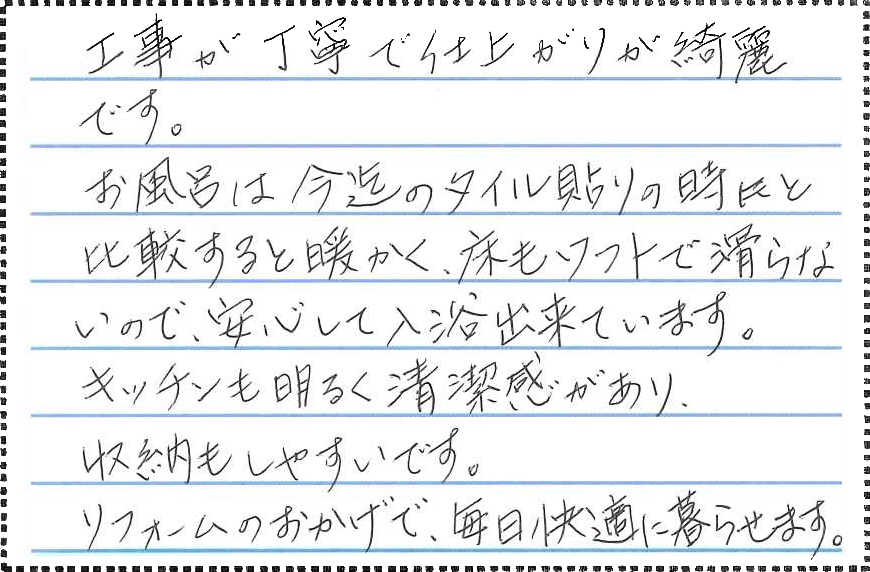 工事が丁寧で仕上がりが綺麗
です。
お風呂は今迄のタイル貼りの時代と
比較すると暖かく、床もソフトで滑らな
いので、安心して入浴出来ています。
キッチンも明るく清潔感があり、
収納もしやすいです。
リフォームのおかげで、毎日快適に暮らせます。